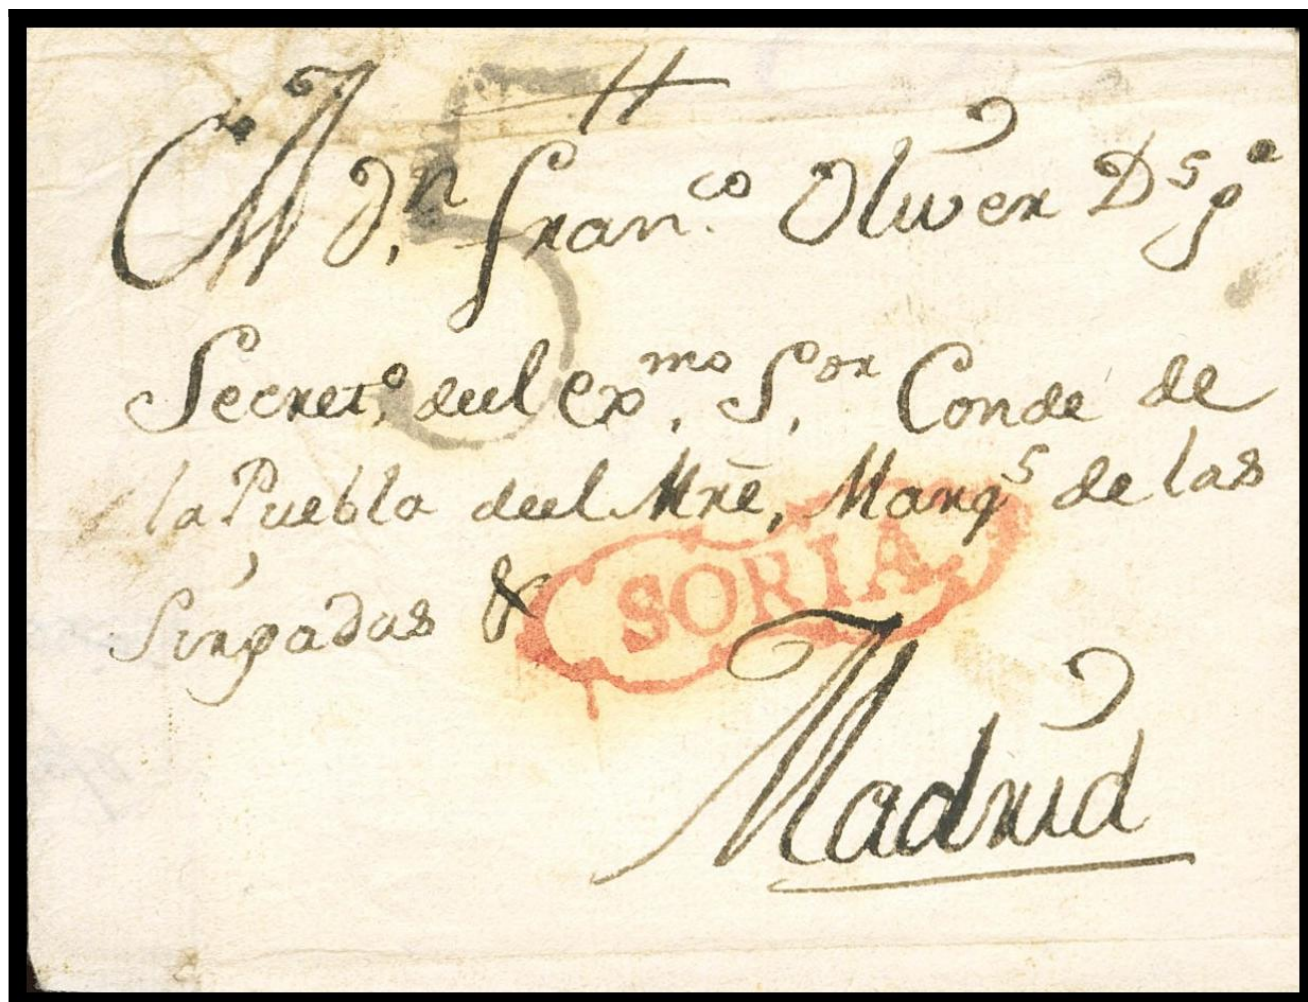 A D.n Fran.co Oliver D.s g.e
Secret.o del ex.mo S.or Conde de
la Puebla del Mrē, Marq.s de las
SORIA
Madrid
5